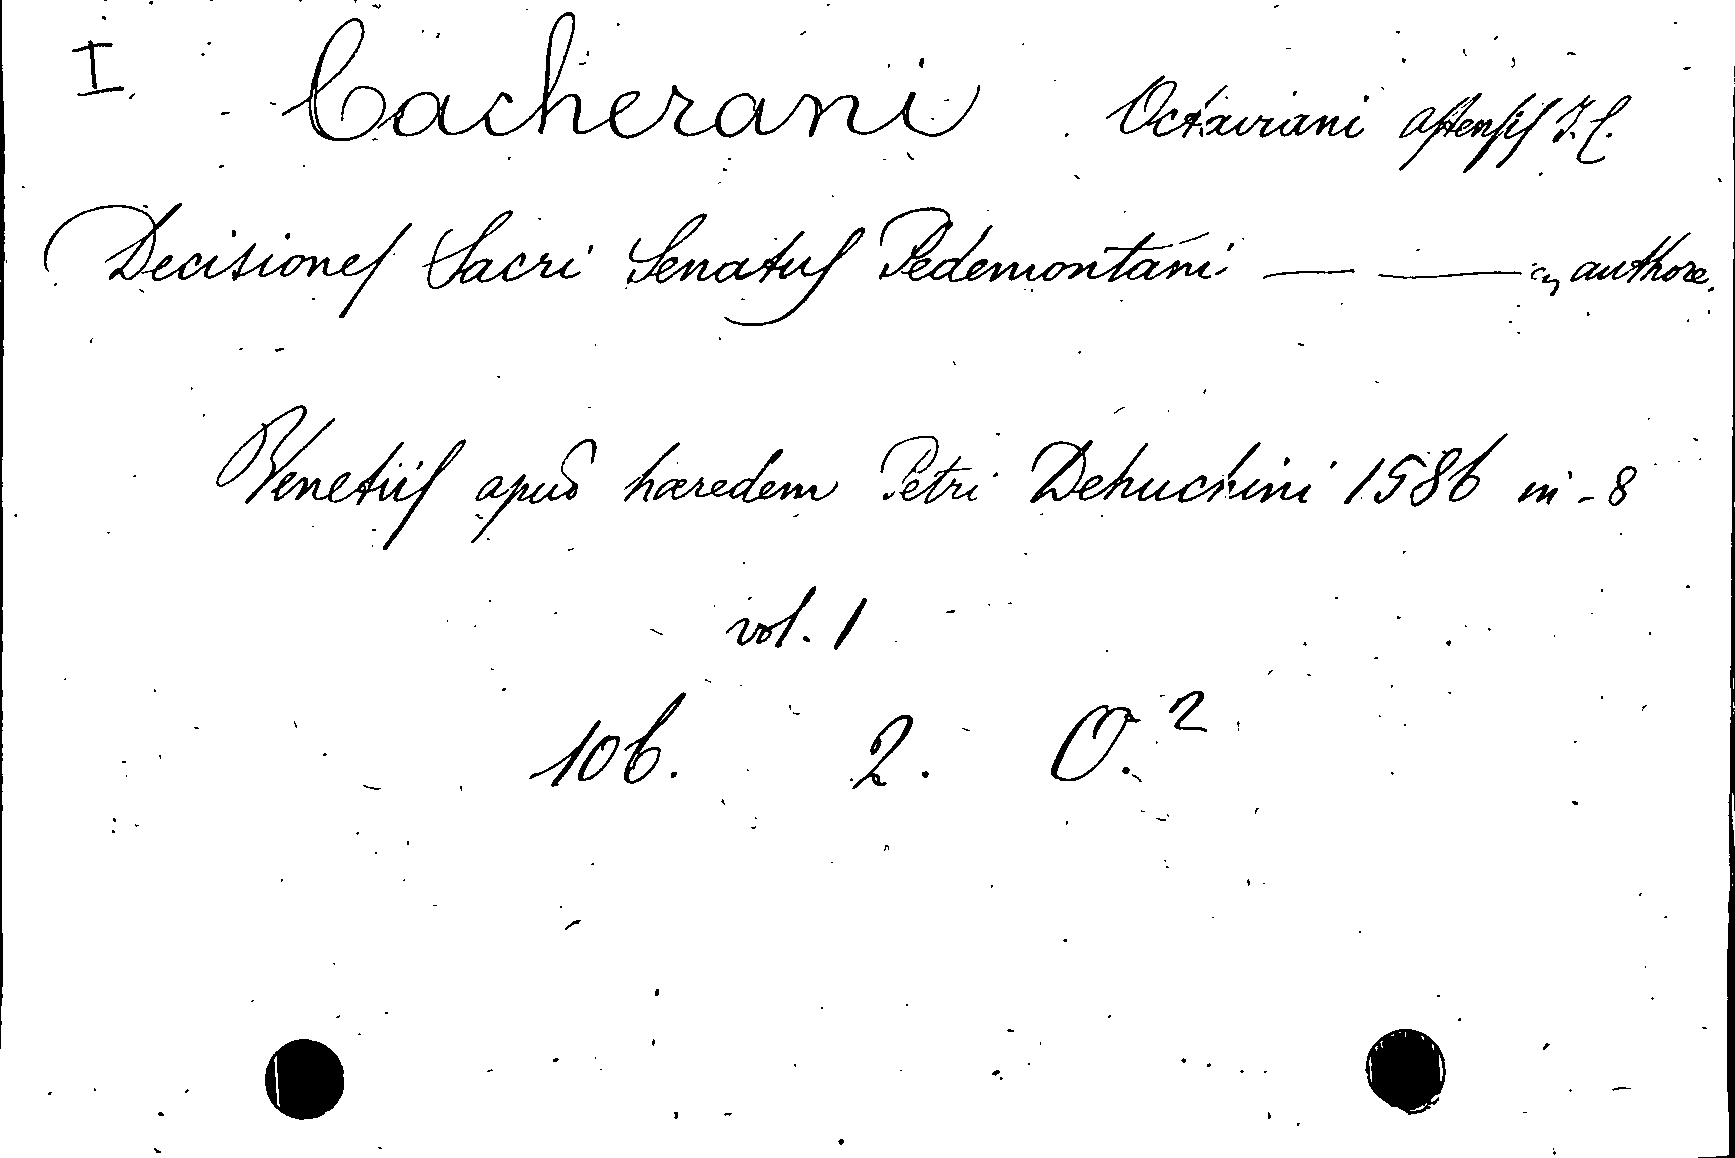 I. Cacherani Octaviani Astensis J. C.
Decisiones Sacri Senatus Pedemontani — — authore.
Venetiis apud haeredem Petri Dehuchini 1586 in-8
vol. 1
106. 2. O.²